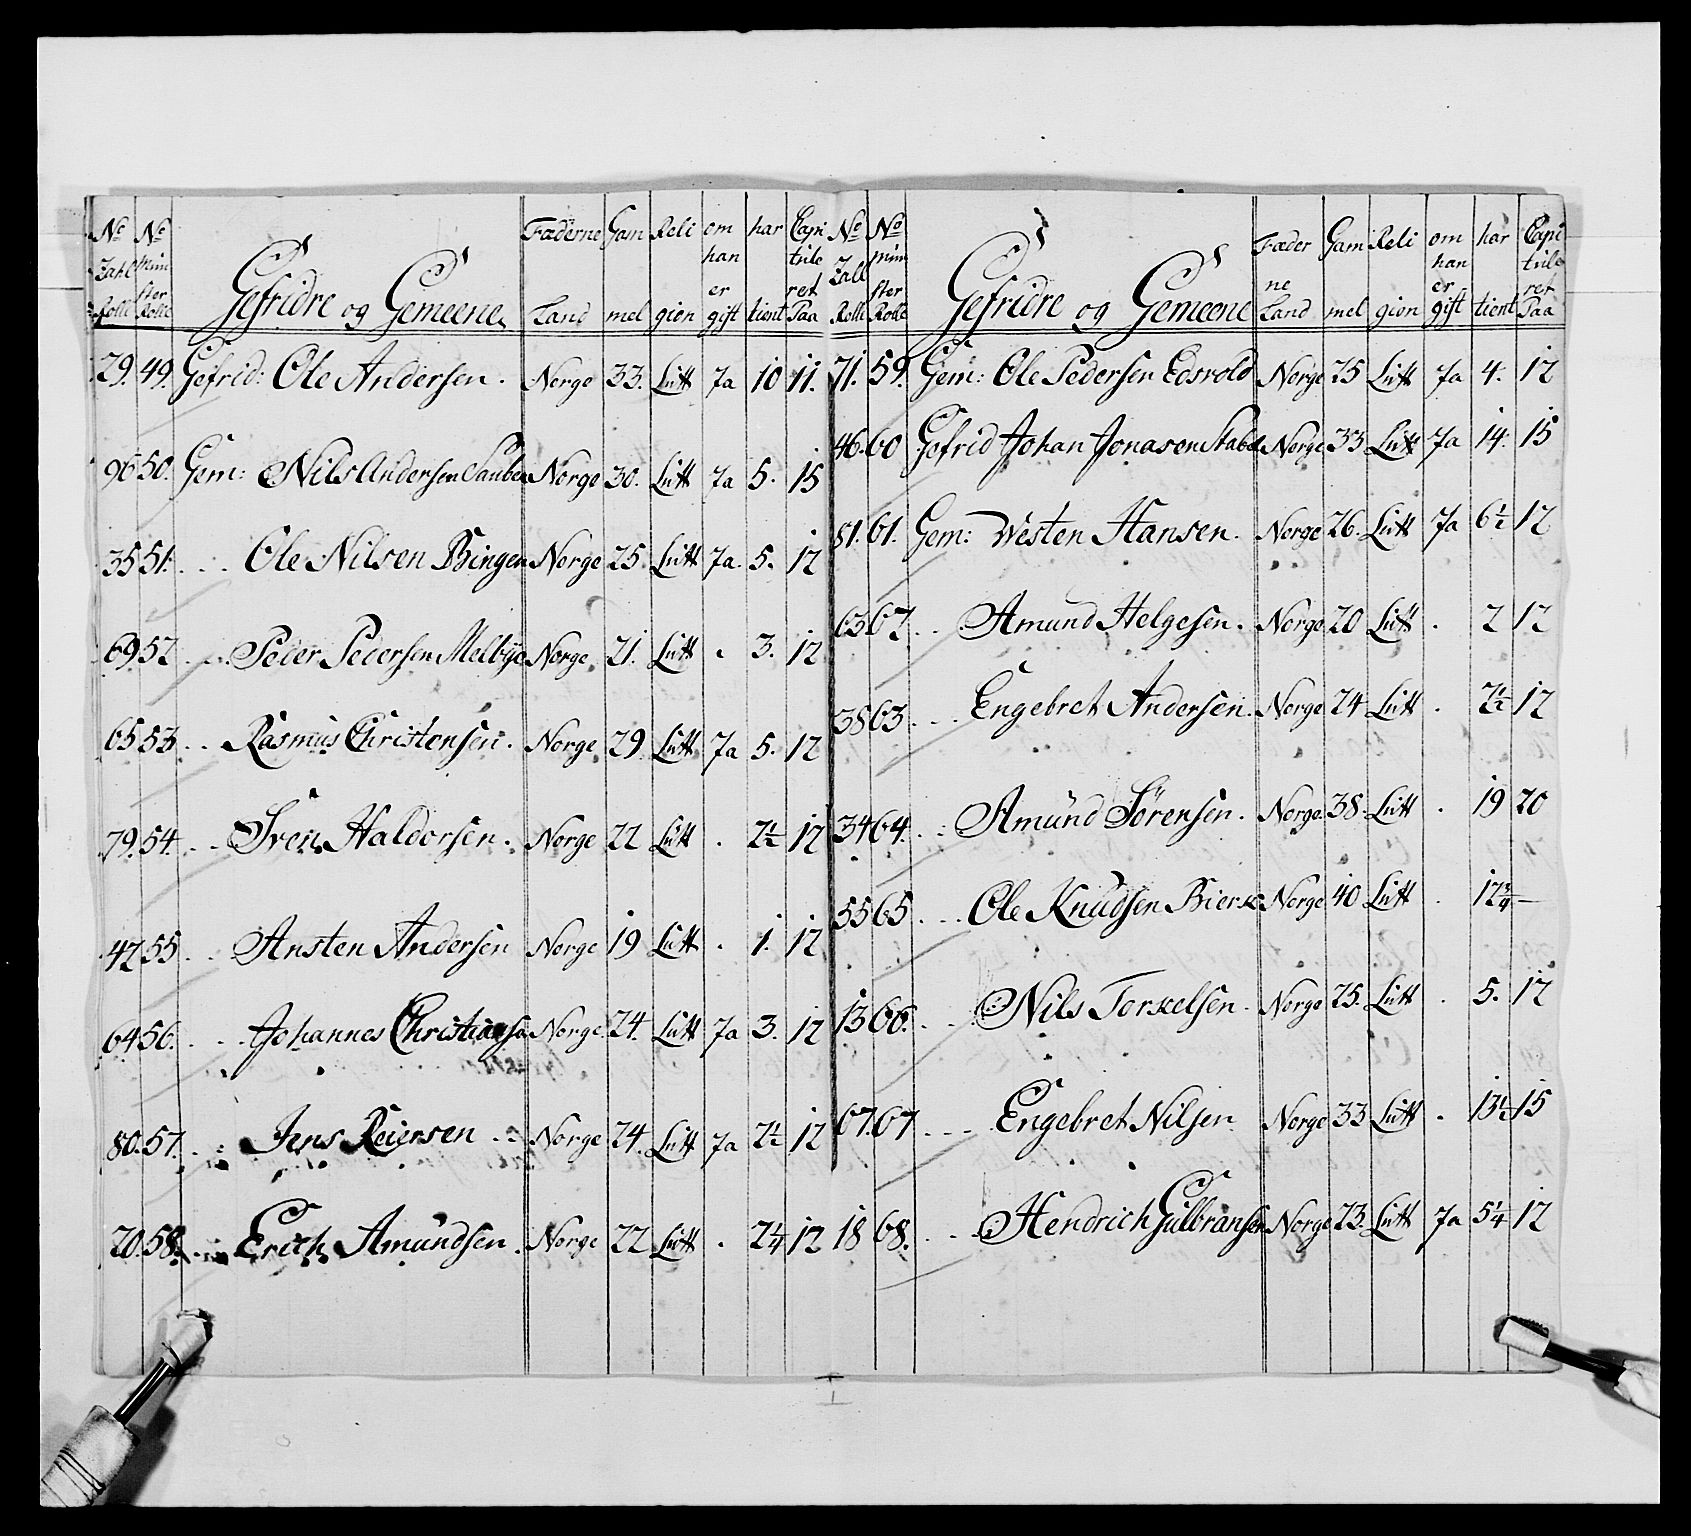 No Zahl Rolle | No Mün ster Rolle | Gefridre og Gemeene | Fæderne Land | Gam mel | Reli gion | om han er gift | har tient | Capi tule ret Paa
29. 49. Gefrid: Ole Andersen. Norge 33. Lutt Ja 10 11.
96 50. Gem: Nils Andersen Norge 30. Lutt Ja 5. 15
35 51. Ole Nilsen Bingen Norge 25. Lutt Ja. 5. 12
69 52 Peder Pedersen Melbye Norge 21. Lutt . 3. 12
65 53 Rasmus Christensen. Norge 29 Lutt Ja 5. 12
79. 54. Sven Haldorsen. Norge 22 Lutt . 2½ 12
47 55 Ansten Andersen Norge 19 Lutt . 1. 12
64 56. Johannes Christiansen Norge 24. Lutt Ja 3. 12
80. 57. Jens Reiersen Norge 24. Lutt Ja 2½ 12
20. 58. Erich Amundsen. Norge 22 Lutt . 2¼ 12
No Zall Rolle | No Mün ster Rolle | Gefridre og Gemeene | Fæder ne Land | Gam mel | Reli gion | om han er gift | har tient | Capi tule ret Paa
71. 59. Gem: Ole Pedersen Edsvold Norge 25 Lutt Ja 4. 12
46. 60 Gefrid Johan Jonasen Stabæ Norge 33 Lutt Ja 14. 15
81. 61. Gem: Westen Hansen. Norge 26. Lutt Ja 6½ 12
63 62 Amund Helgesen. Norge 20 Lutt . 2 12
38 63 Engebret Andersen. Norge 24 Lutt . 2½ 12
34 64. Amund Sörensen. Norge 38. Lutt . 19 20
55 65 Ole Knudsen Norge 40 Lutt . 12¾ —
13 66. Nils Torkelsen. Norge 25. Lutt . 5. 12
67. 67 Engebret Nilsen Norge 33 Lutt . 13½ 15
18 68. Hendrich Gulbransen Norge 23. Lutt Ja 5¼ 12